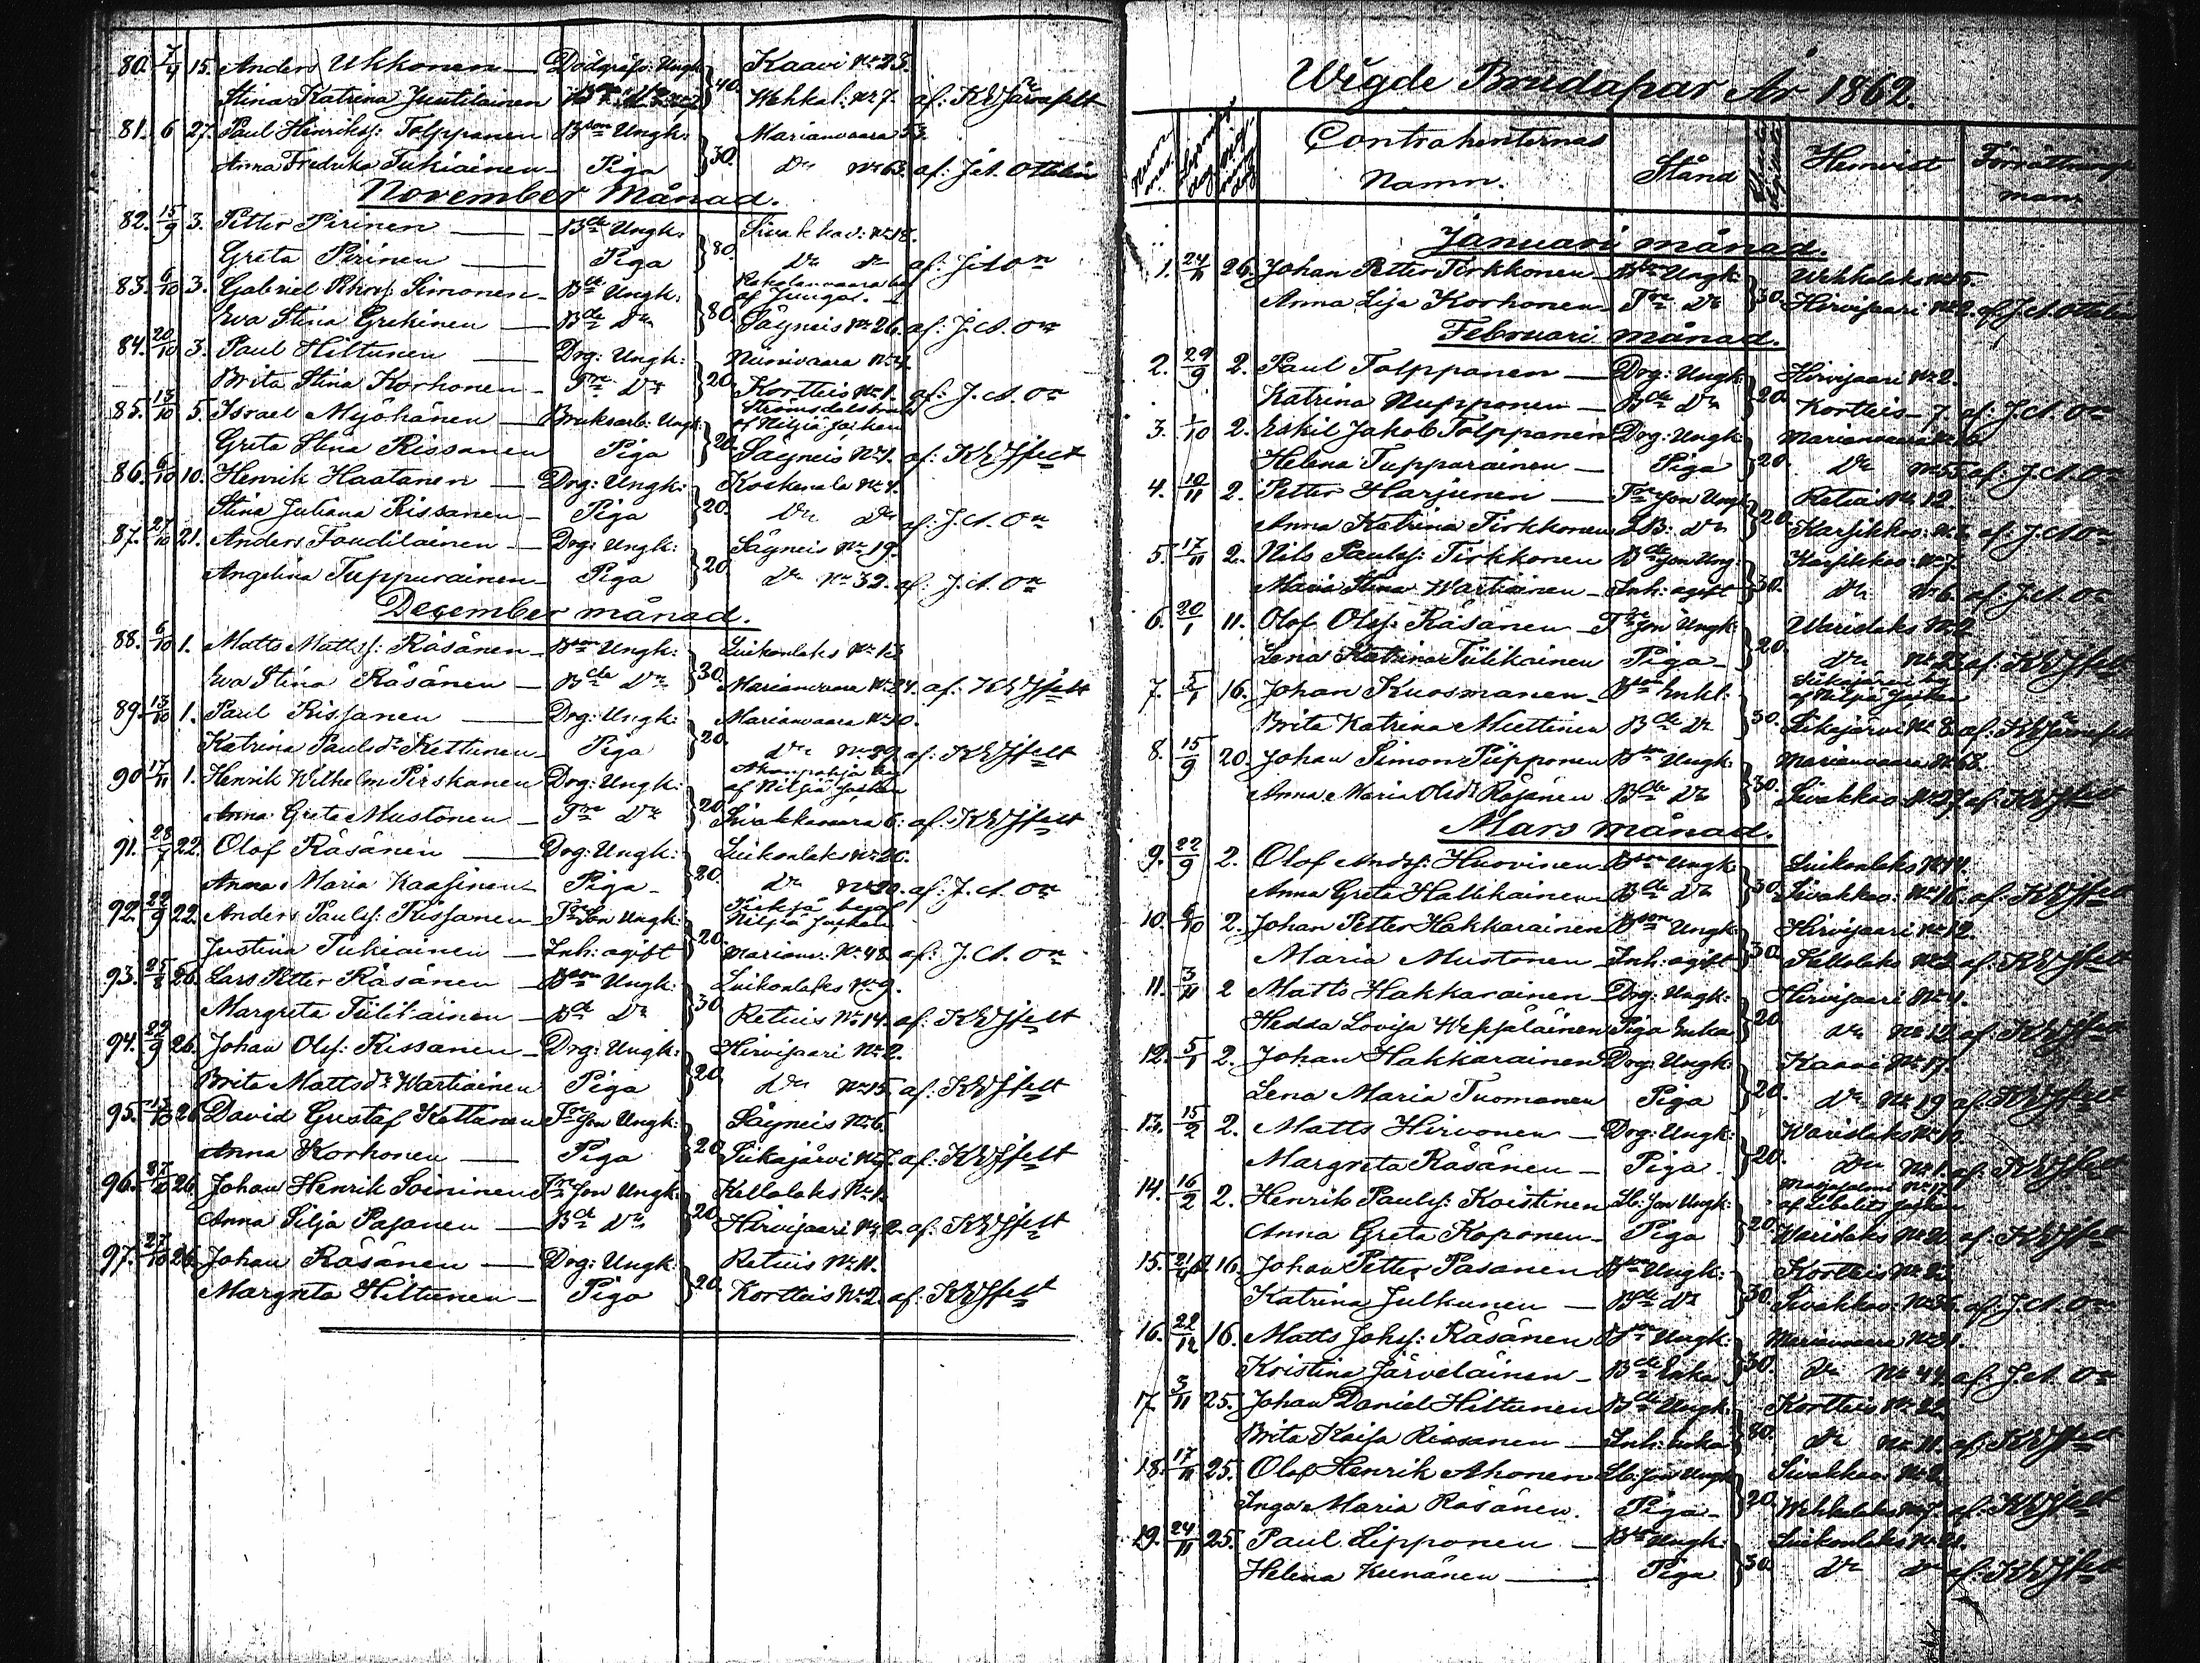 80. 7/4 15. Anders Ukkonen — Dödgräf: Ungk: Kaavi No 23.
Stina Katrina Juntilainen 40. Wehkal: No 7. af: K E Järnefelt
81. 6 27. Paul Hinrikss: Tolppanen Bson Ungk: Marianvaara 53.
Anna Fredrika Tukiainen Piga 30. Do No 63. af: J. A. Ottelin
November Månad.
82. 15/9 3. Petter Pirinen — Bde Ungk: Sivakkav: No 18.
Greta Pirinen — Piga 80. Do Do af: J. A. On
83. 6/10 3. Gabriel Simonen Bde Ungk:
Eva Stina Grekinen — Bde Do 80. Säyneis No 26. af: J. A. On
84. 20/10 3. Paul Hiltunen — Drg: Ungk: Niinivaara No 4.
Brita Stina Korhonen — Tre Do 20. Kortteis No 1. af: J. A. On
85. 13/10 5. Israel Myöhänen — Bruksarb: Ungk: Strömsdalsbruk af Nilsiä Sockn
Greta Stina Rissanen Piga 20. Säyneis No 1. af: K E Jfelt
86. 6/10 10. Henrik Haatanen — Drg: Ungk: Koskenala No 4.
Stina Juliana Rissanen Piga 20. Do Do af: J. A. On
87. 27/10 21. Anders Foudilainen — Drg: Ungk: Säyneis No 19.
Angelina Tuppurainen Piga 20. Do No 32. af: J. A. On
December månad.
88. 6/10 1. Matts Mattss: Räsänen Bson Ungk: Luikonlaks No 13
Eva Stina Räsänen — Bde Do 30. Marianvaara No 24. af: K E Jfelt
89. 13/10 1. Paul Rissanen — Drg: Ungk: Marianvaara No 30.
Katrina Paulsdr Kettunen Piga 20. Do No 29. af: K E Jfelt
90 17/11 1. Henrik Wilhelm Pirskanen Drg: Ungk: by af Nilsiä Sockn
Anna Greta Mustonen — Tre Do 20. Sivakkavaara 6. af: K E Jfelt
91. 28/7 22. Olof Räsänen — Drg: Ungk: Luikonlaks No 20.
Anna Maria Kaasinen Piga 20. Do No 20. af: J. A. On
92. 29/9 22. Anders Paulss: Rissanen Treson Ungk: by af Nilsiä Sockn
Justina Tukiainen — Inh: ogift 20. Marianv: No 48. af: J. A. On
93. 25/8 26. Lars Petter Räsänen — Bson Ungk: Luikonlaks No 9.
Margreta Tiilikainen — Bde Do 30 Retuis No 14. af: K E Jfelt
94. 29/9 26. Johan Olss: Rissanen — Drg: Ungk: Hirvisaari No 2.
Brita Mattsdr Wartiainen Piga 20. Do No 15. af: K E Jfelt
95. 13/10 26. David Gustaf Kettunen Treson Ungk: Säyneis No 6.
Anna Korhonen — Piga 20. Siikajärvi No 7. af: K E Jfelt
96. 27/10 26. Johan Henrik Soininen Treson Ungk: Kellolaks No 1.
Anna Silja Pasanen — Bde Do 20. Hirvisaari No 2. af: K E Jfelt
97. 27/10 26. Johan Räsänen — Drg: Ungk: Retuis No 11.
Margreta Hiltunen — Piga 20. Kortteis No 2. af: K E Jfelt
Wigde Brudapar År 1862.
Contrahenternas Namn. Stånd Hemvist Förrättningsman
Januari månad.
1. 24/11 26. Johan Petter Tirkkonen Bson Ungk: Wehkalaks No 5.
Anna Lisa Korhonen Tre Do 30. Hirvisaari No 2. af: J. A. Ottelin
Februari månad.
2. 29/9 2. Paul Tolppanen — Drg: Ungk: Hirvisaari No 2.
Katrina Nupponen — Bde Do 20. Kortteis 7. af: J. A. On
3. 1/10 2. Eskil Jakob Tolppanen Drg: Ungk: Marianvaara No 6.
Helena Tuppurainen — Piga 20. Do No 55 af: J. A. On
4. 10/11 2. Petter Harjunen — Treson Ungk: Retuis No 12.
Anna Katrina Tirkkonen LB: Do 20. Karsikkov: No 7. af: J. A. On
5. 17/11 2. Nils Paulss: Tirkkonen Bdeson Ung: Karsikkov: No 7.
Maria Stina Wartiainen Inh: ogift 30. Do No 6. af: J. A. On
6. 20/1 11. Olof Olss: Räsänen Treson Ungk: Warislaks No 2
Lena Katrina Tiilikainen Piga 20. Do No 2. af: K E Jfelt
7. 5/1 16. Johan Kuosmanen Bson Enkl: Siikajärvi by af Nilsiä Sockn
Brita Katrina Miettinen Bde Do 30. Siikajärvi No 8. af: K E Järnefelt
8. 15/9 20. Johan Simon Piipponen Bson Ungk: Marianvaara No 68.
Anna Maria Olsdr Räsänen Bde Do 30. Sivakkav: No 27. af: K E Jfelt
Mars månad.
9. 22/9 2. Olof Andss: Huovinen Bson Ungk: Luikonlaks No 14.
Anna Greta Hallikainen Bde Do 30. Sivakkav: No 16. af: K E Jfelt
10. 6/10 2. Johan Petter Hakkarainen Bson Ungk: Hirvisaari No 12.
Maria Mustonen Inh: ogift 30. Kellolaks No 2. af: K E Jfelt
11. 3/11 2 Matts Hakkarainen Drg: Ungk: Hirvisaari No 4.
Hedda Lovisa Wepsäläinen Piga Enka 20. Do No 12. af: K E Jfelt
12. 5/1 2. Johan Hakkarainen Drg: Ungk: Kaavi No 17.
Lena Maria Tuomanen Piga 20. Do No 19 af: K E Jfelt
13. 15/2 2. Matts Hirvonen — Drg: Ungk: Warislaks No 10.
Margreta Räsänen — Piga 20. Do No 1. af: K E Jfelt
14. 16/2 2. Henrik Paulss: Koistinen Lb: son Ungk: af Libelits Sockn
Anna Greta Koponen Piga 20. Warislaks No 2. af: K E Jfelt
15. 16. Johan Petter Pasanen Bson Ungk: Kortteis No 2.
Katrina Julkunen — Bde Do 30. Sivakkav: No 36. af: J. A. On
16. 22/12 16. Matts Johss: Räsänen Bson Ungk: Marianvaara No 31.
Kristina Järveläinen Bde Enka 30. Do No 44. af: J. A. On
17. 3/11 25. Johan Daniel Hiltunen Bde Ungk: Kortteis No 22.
Brita Kaisa Rissanen — Inh: enka 80. Do No 11. af: K E Jfelt
18. 17/11 25. Olof Henrik Ahonen Lb: son Ungk: Sivakkav: No 2.
Inga Maria Räsänen. Piga 20. Wehkalaks No 7. af: K E Jfelt
19. 24/11 25. Paul Lipponen — Bson Ungk: Luikonlaks No 21.
Helena Keinänen — Piga 30. Do Do af: K E Jfelt